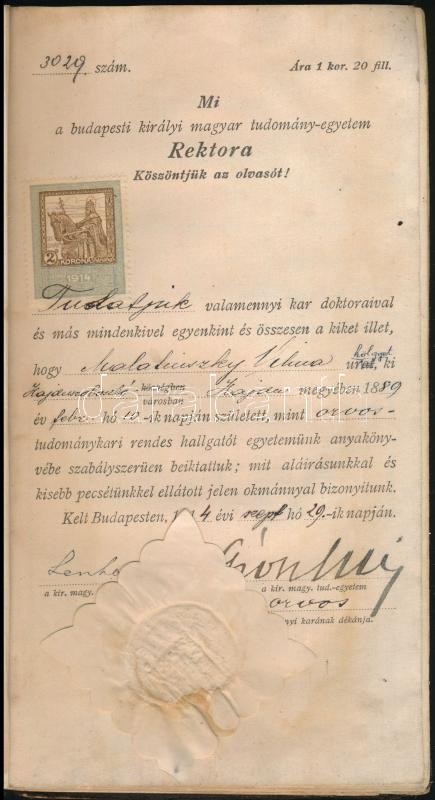 3029 szám. Ára 1 kor. 20 fill.
Mi
a budapesti királyi magyar tudomány-egyetem
Rektora
Köszöntjük az olvasót!
2 KORONA
1914
Tudatjuk valamennyi kar doktoraival
és más mindenkivel egyenkint és összesen a kiket illet,
hogy Vilma hölgyet urat, ki
községben
városban megyében 1889
év febr hó 10-ik napján született, mint orvos-
tudománykari rendes hallgatót egyetemünk anyaköny-
vébe szabályszerüen beiktattuk; mit aláirásunkkal és
kisebb pecsétünkkel ellátott jelen okmánnyal bizonyitunk.
Kelt Budapesten, 1914 évi sept hó 29-ik napján.
a kir. magy. a kir. magy. tud.-egyetem
orvos
nyi karának dékánja.
darabanth